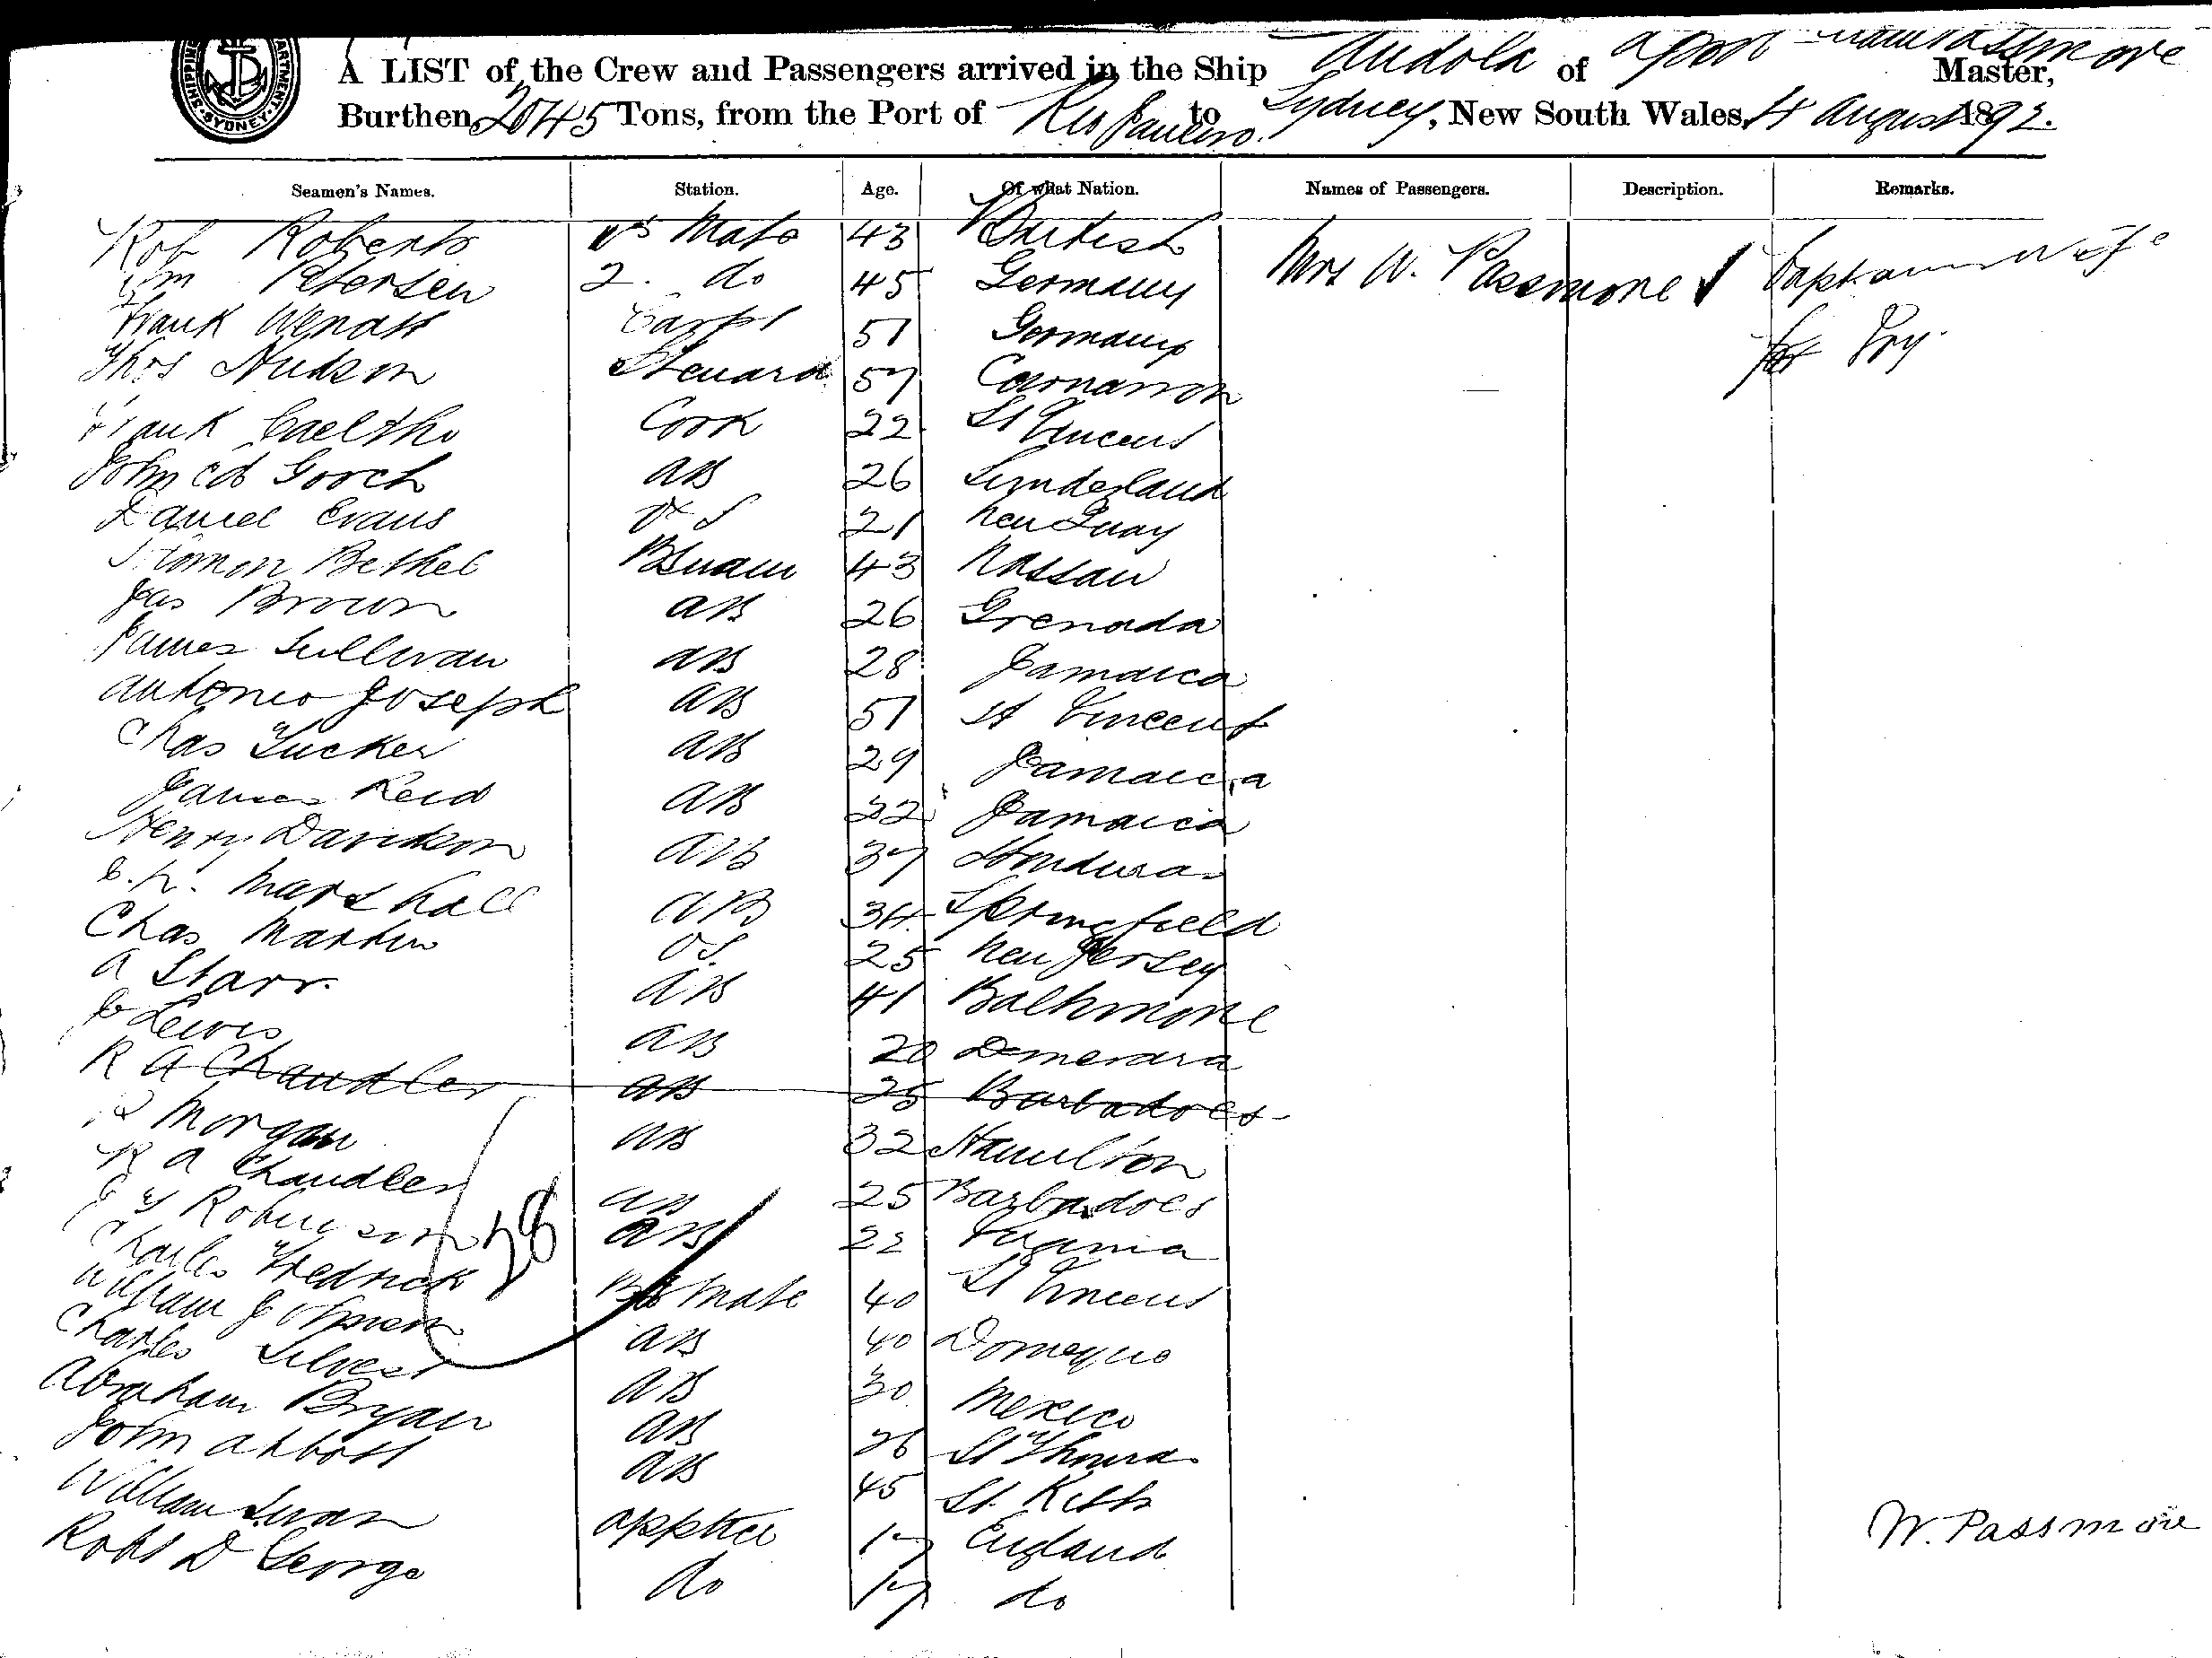 A LIST of the Crew and Passengers arrived in the Ship Andola of Master,
Burthen, 2045 Tons, from the Port of Rio Janeiro to Sydney, New South Wales, 4 August 1892.
Seamen's Names. Station. Age. Of what Nation. Names of Passengers. Description. Remarks.
Rob Roberts Mate 43 British Mrs W. Passmore Captains Wife
Wm Petersen 2. do 45 Germany
Frank 51 Germany
Thos Hudson Steuard 57 Carnarvon
Frank Cook 22 St Vincent
John Ed Gooch AB 26 Sunderland
Daniel Evans O S 21 New Quay
Bethel 43 Nassau
Jas Brown AB 26 Grenada
James Sullivan AB 28 Jamaica
Antonio Joseph AB 51 St Vincent
Chas Tucker AB 29 Jamaica
James Reid AB 22 Jamaica
Henry Davidson AB 37 Honduras
Marshall AB 34 Springfield
Chas Martin OS. 25 New Jersey
A Starr. AB 41 Baltimore
Lewis AB 20 Demerara
R A Chandler AB 25 Barbadoes
Morgan AB 32 Hamilton
R A Chandler AB 25 Barbadoes
Robinson AB 22
28
Charles Fredrick Mate 40 St Vincent
William Johnson AB 40
Charles Silvest AB 30 Mexico
Abraham Bryan AB 26 St Thomas
John Abbott AB 45 St. Kitts
William Swan apptce 17 England
Robt D George do 17 do
W. Passmore